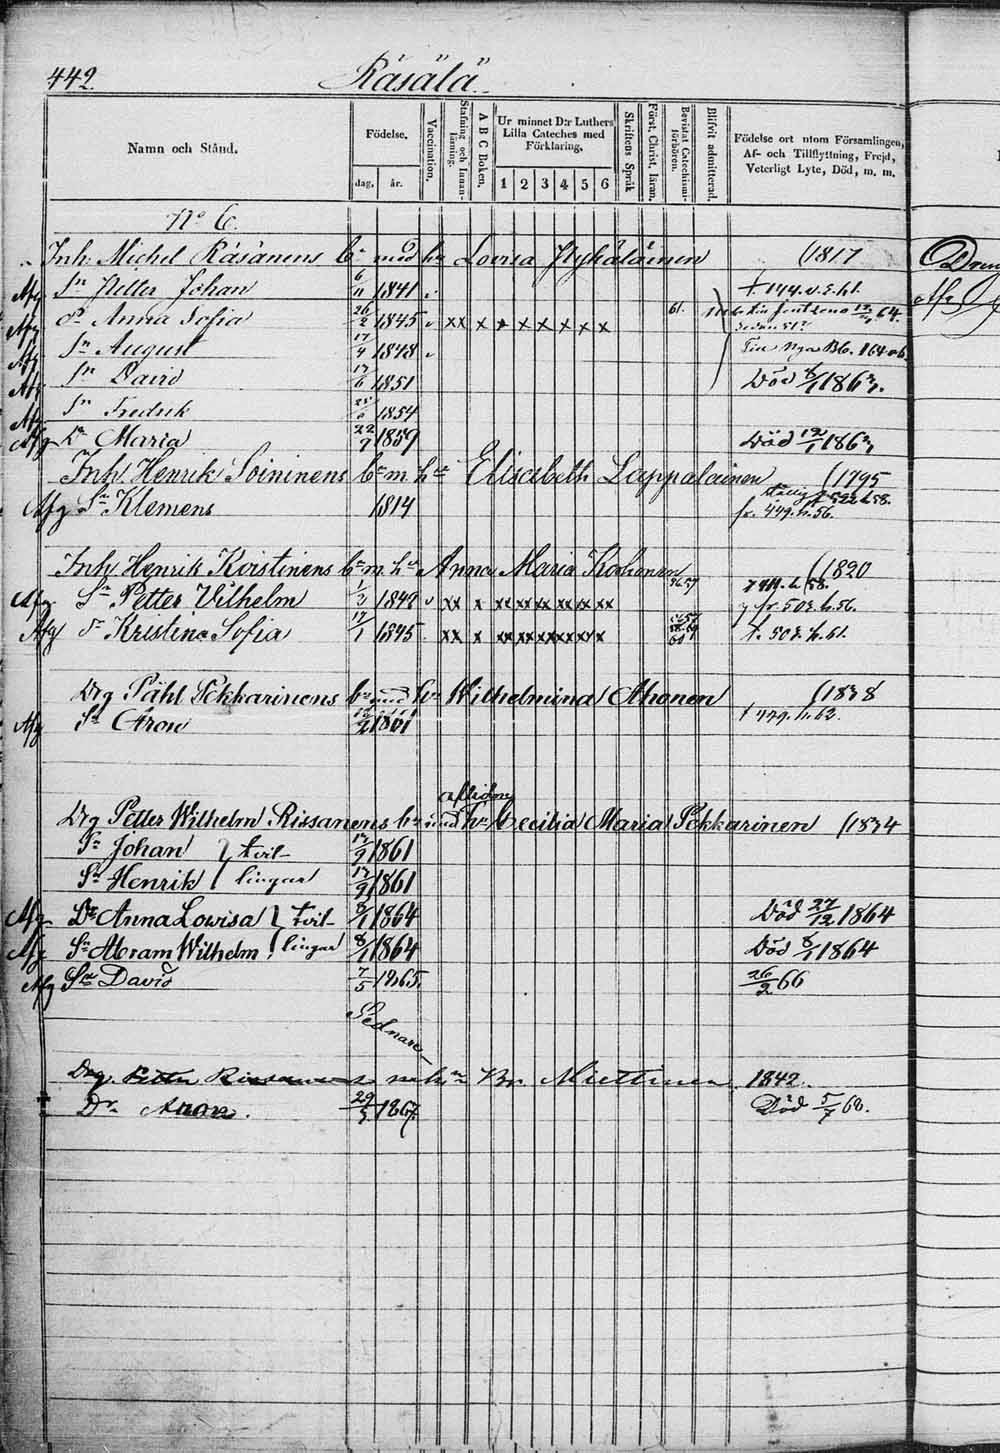 442. Räsälä.
Namn och Stånd.
Födelse.
dag. år.
Vaccination.
Stafning och Innanläsning.
A B C Boken.
Ur minnet D:r Luthers Lilla Cateches med Förklaring.
1 2 3 4 5 6
Skriftens Språk
Först. Christ. läran.
Bevistat Catechismiförhören.
Blifvit admitterad.
Födelse ort utom Församlingen, Af- och Tillflyttning, Frejd, Veterligt Lyte, Död, m. m.
No 6.
Inh: Michel Räsänens bn med hu Lovisa Hykäläinen (1817
Afg Sn Petter Johan 6/11 1841 v
Afg Dr Anna Sofia 26/2 1845 v xx x x x x x x x 61. 64.
Afg Sn August 17/4 1848 v
Afg Sn David 17/6 1851 Död 8/1 1863.
Afg Sn Fredrik 1854
Afg Dr Maria 22/7 1859 Död 12/1 1863
Inh: Henrik Soininens bn m. hu Elisabeth Lappalainen (1795
Afg Sn Klemens 1814 fr. 449. h. 56.
Inh: Henrik Koistinens bn m. hu Anna Maria Korhonen (1820
Afg. Sn Petter Vilhelm 1/3 1842 v xx x xx xx xx xx xx xx 56.57 fr. 503. h. 56.
Afg Dr Kristina Sofia 17/1 1845 xx x xx xx xx xx x x t. 503. h. 61.
Drg Påhl Pekkarinens bn med hu Wilhelmina Ahonen (1838
Afg Sn Aron 1861 t 449. h. 62.
afliden
Drg Petter Wilhelm Rissanens bn med hu Cecilia Maria Pekkarinen (1834
Sn Johan } tvil- 17/9 1861
Sn Henrik } lingar 17/9 1861
Afg. Dr Anna Lowisa } tvil- 8/1 1864 Död 27/12 1864
Afg. Sn Abram Wilhelm } lingar 8/1 1864 Död 8/1 1864
Afg Sn David 7/5 1865. 26/2 66
Sednare
Drg. Petter Rissanens Miettinen 1842.
Dr. 29/3 1867. Död 5/7 68.